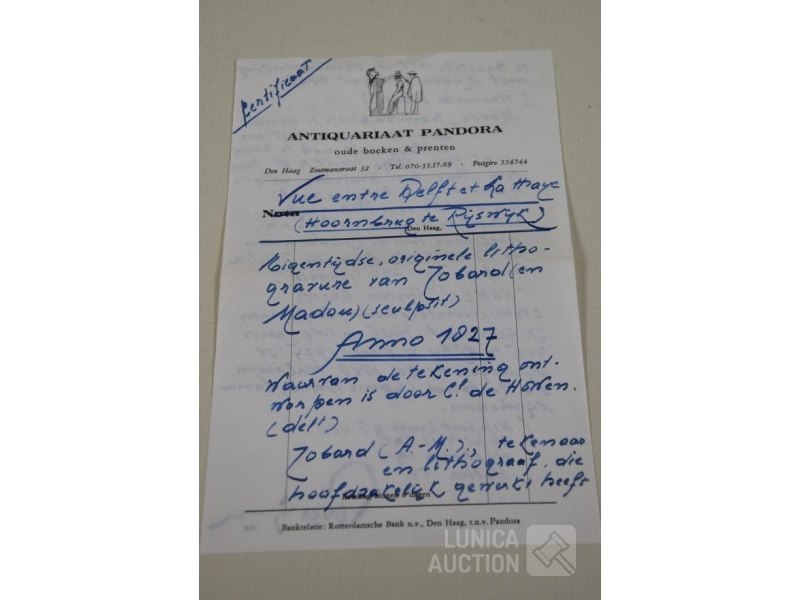 Certificaat
ANTIQUARIAAT PANDORA
oude boeken & prenten
Den Haag Zoutmanstraat 32 - Tel. 070-33.17.69 - Postgiro 554744
Vue entre Delft et La Haye
Nota
(Hoornbrug te Rijswijk)
Den Haag,
Eigentijdse, originele litho-
gravure van Jobard (en
Madou) (sculpsit)
Anno 1827
Waarvan de tekening ont-
worpen is door Ct. de Howen.
(delt)
Jobard (A.-M.), tekenaar
en lithograaf, die
hoofdzakelijk gewerkt heeft
binnen 8 dagen
Bankrelatie: Rotterdamsche Bank n.v., Den Haag, t.n.v. Pandora
LUNICA
AUCTION